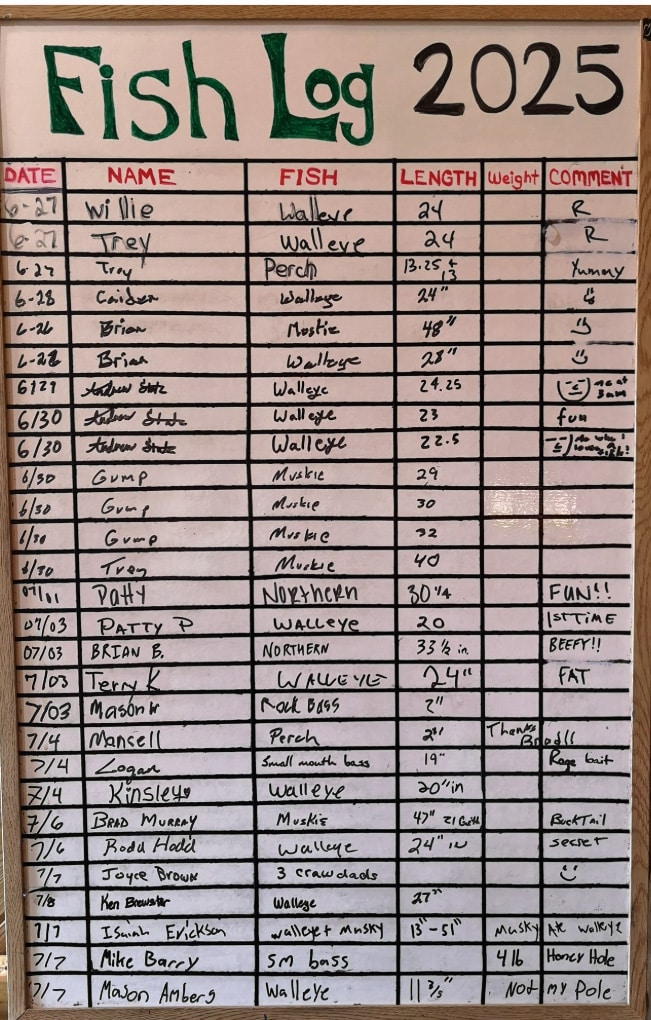 Fish Log 2025
DATE NAME FISH LENGTH Weight COMMENT
6-27 Willie Walleye 24 R
6-27 Trey Walleye 24 R
6-27 Trey Perch 13.25 + 13 Yummy
6-28 Caiden Walleye 24"
6-26 Brian Muskie 48"
6-28 Brian Walleye 28"
6/29 Andrew Walleye 24.25
6/30 Andrew Walleye 23 fun
6/30 Andrew Walleye 22.5
6/30 Gump Muskie 29
6/30 Gump Muskie 30
6/30 Gump Muskie 32
6/30 Trey Muskie 40
07/01 Patty Northern 30 1/4 FUN!!
07/03 PATTY P WALLEYE 20 1ST TIME
07/03 BRIAN B. NORTHERN 33 1/2 in. BEEFY!!
7/03 Terry K WALLEYE 24" FAT
7/03 Mason Rock Bass 2"
7/4 Mansell Perch 2" Thanks Brad!!
7/4 Logan Small mouth bass 19" Rage bait
7/4 Kinsley Walleye 20"in
7/6 BRAD MURRAY MUSKIE 47" 21 Girth BuckTail
7/6 Rodd Hodd Walleye 24" IN secret
7/7 Joyce Brown 3 crawdads
7/8 Ken Brewster Walleye 27"
7/7 Isaiah Erickson walleye + Musky 13"-51" Musky Ate walleye
7/7 Mike Barry SM bass 4 lb Honey Hole
7/7 Mason Ambers Walleye 11 2/3" Not my Pole